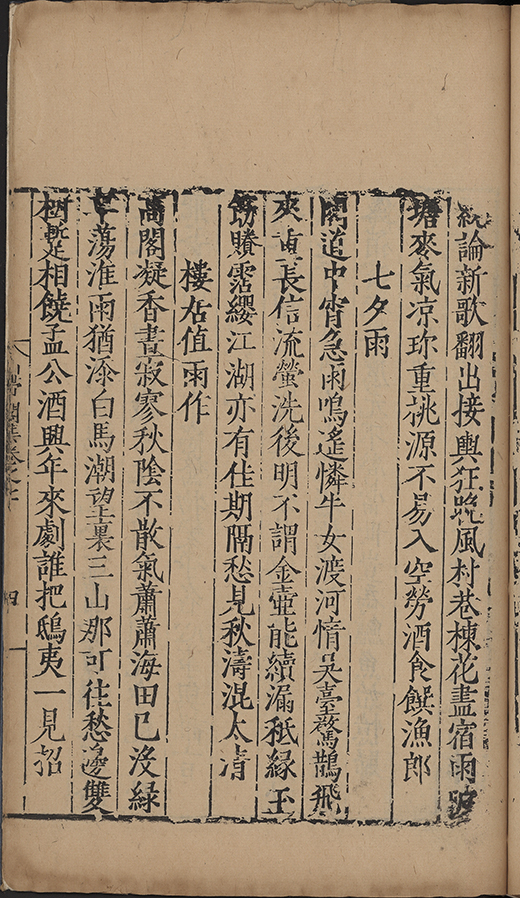 論新歌翻出接輿狂晚風村巷楝花盡宿雨
塘來氣凉珎重桃源不易入空勞酒食饌漁郎
七夕雨
閣道中宵急雨鳴遙憐牛女渡河情吴臺驚鵲飛
來直長信流螢洗後明不謂金壷能續漏秪緣玉
筯賸霑纓江湖亦有佳期隔愁見秋濤混太清
樓居值雨作
高閣凝香晝寂寥秋陰不散氣蕭蕭海田已沒綠
蕩淮雨猶添白馬潮望裏三山那可往愁邊雙
樹蹔相饒孟公酒興年來劇誰把鴟夷一見招
四